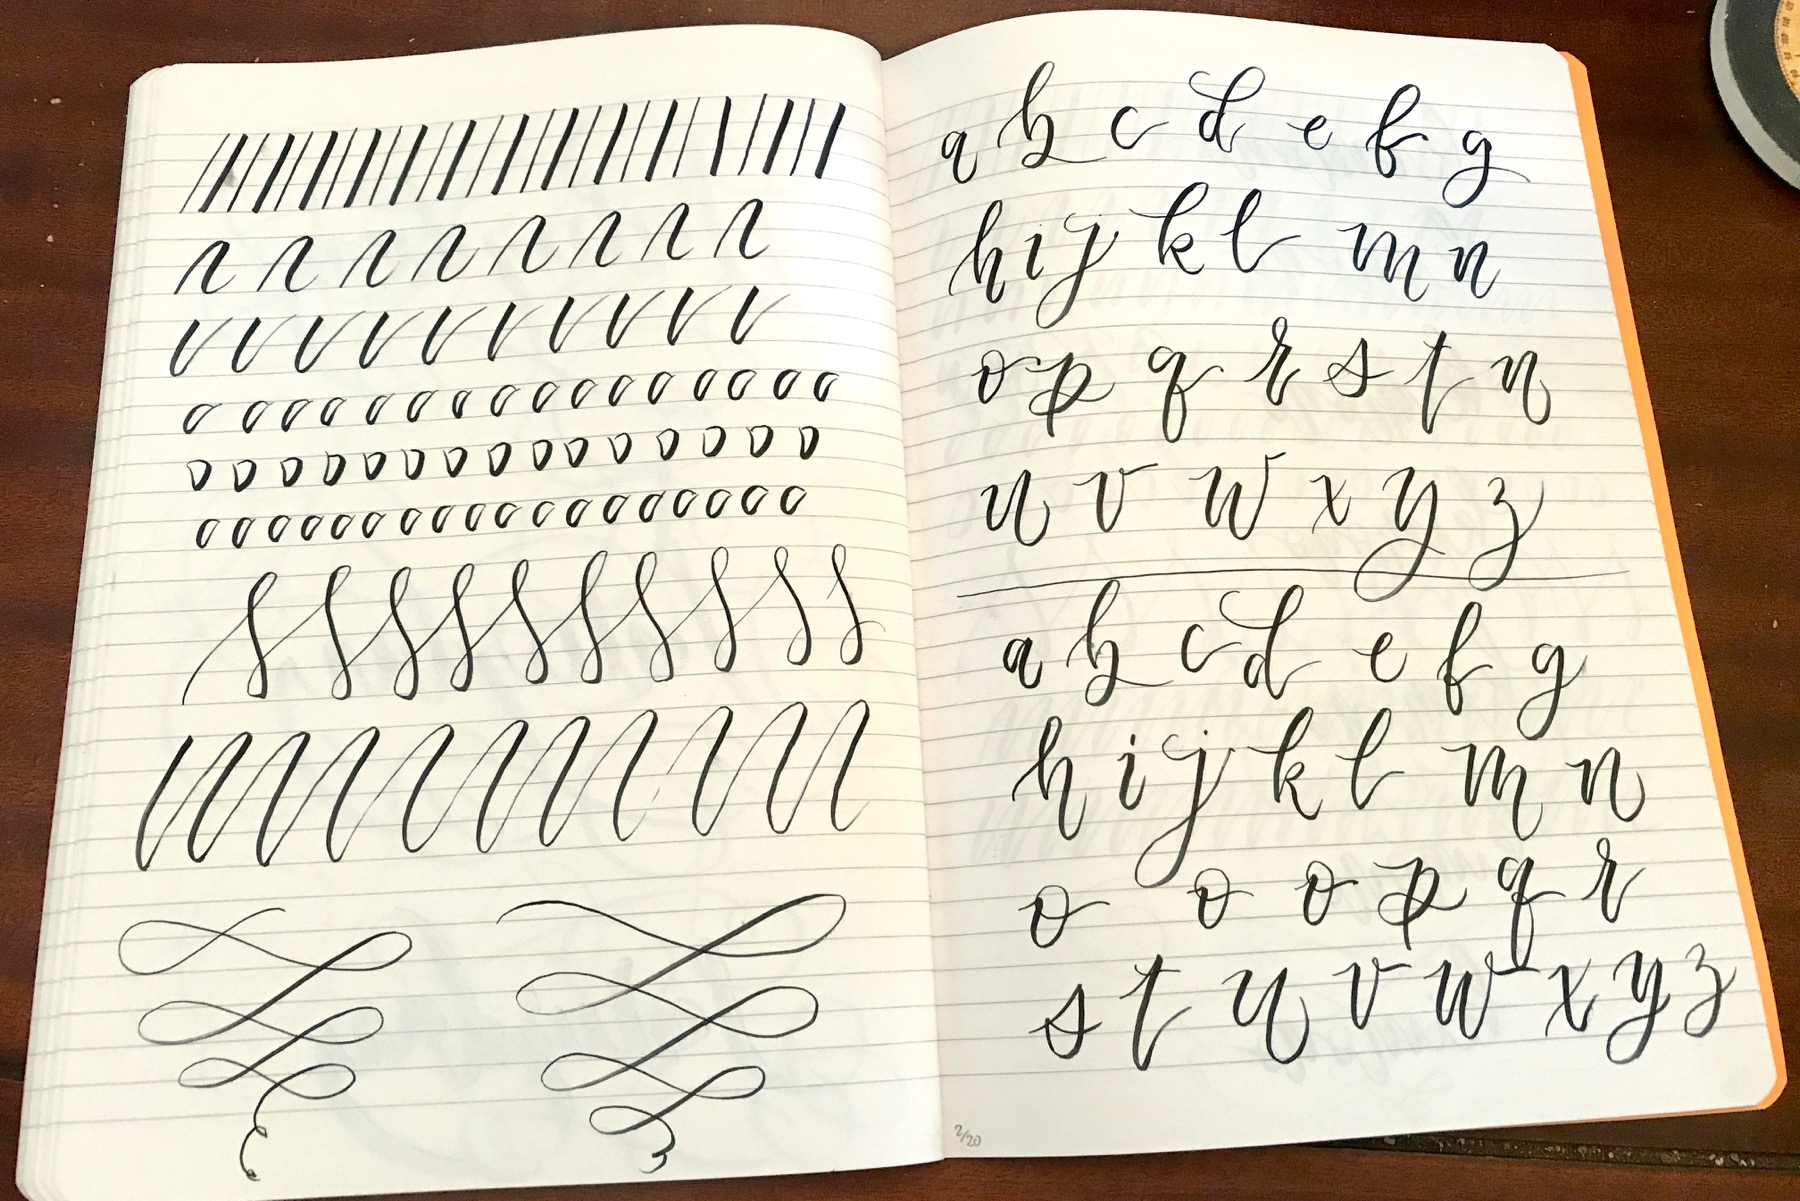 a b c d e f g
h i j k l m n
o p q r s t n
u v w x y z
a b c d e f g
h i j k l m n
o o o p q r
s t u v w x y z
2/20